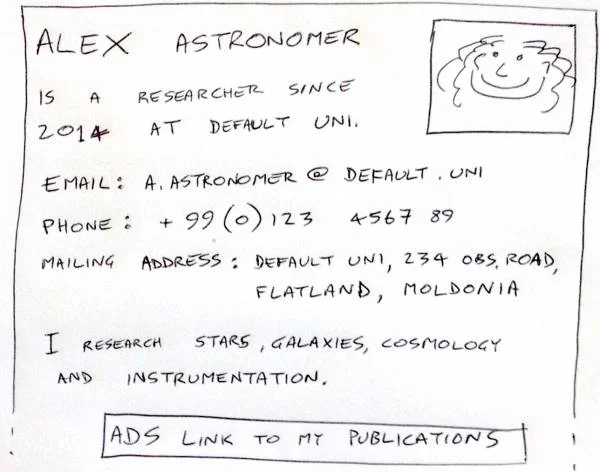 ALEX ASTRONOMER
IS A RESEARCHER SINCE
2014 AT DEFAULT UNI.
EMAIL: A.ASTRONOMER @ DEFAULT.UNI
PHONE: +99(0)123 4567 89
MAILING ADDRESS: DEFAULT UNI, 234 OBS. ROAD,
FLATLAND, MOLDONIA
I RESEARCH STARS, GALAXIES, COSMOLOGY
AND INSTRUMENTATION.
ADS LINK TO MY PUBLICATIONS